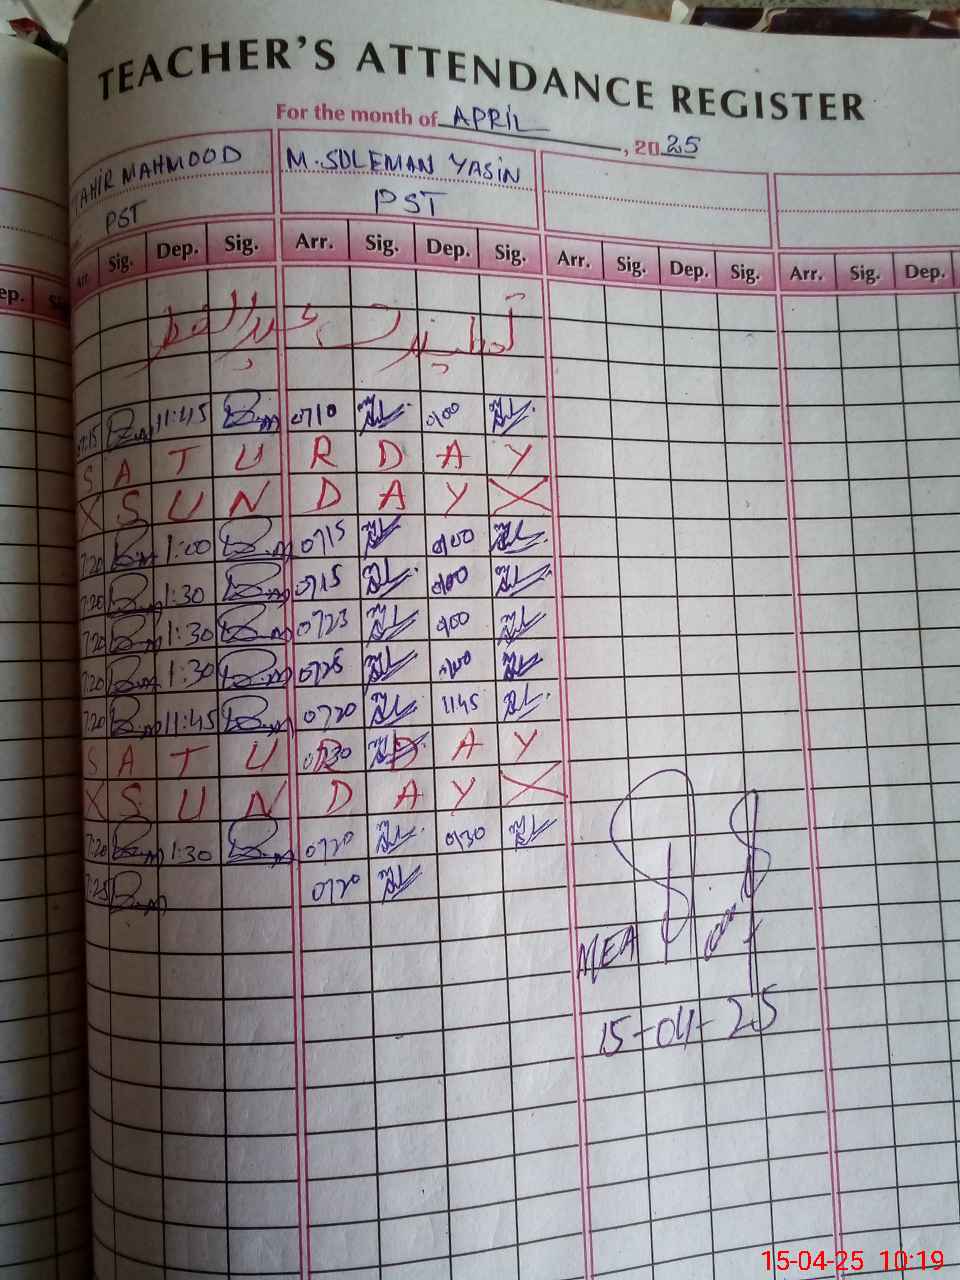 TEACHER'S ATTENDANCE REGISTER
For the month of APRIL, 2025
TAHIR MAHMOOD M. SULEMAN YASIN
PST PST
ep. Arr. Sig. Dep. Sig. Arr. Sig. Dep. Sig. Arr. Sig. Dep. Sig. Arr. Sig. Dep.
تعطیلات عیدالفطر
07:15 11:45 0710 0100
S A T U R D A Y
X S U N D A Y X
7:20 1:00 0715 0100
7:20 1:30 0715 0100
7:20 1:30 0723 0100
7:20 1:30 0725 0100
7:20 11:45 0720 1145
S A T U R D A Y
X S U N D A Y X
7:20 1:30 0720 0130
7:25 0720
MEA
15-04-25
15-04-25 10:19